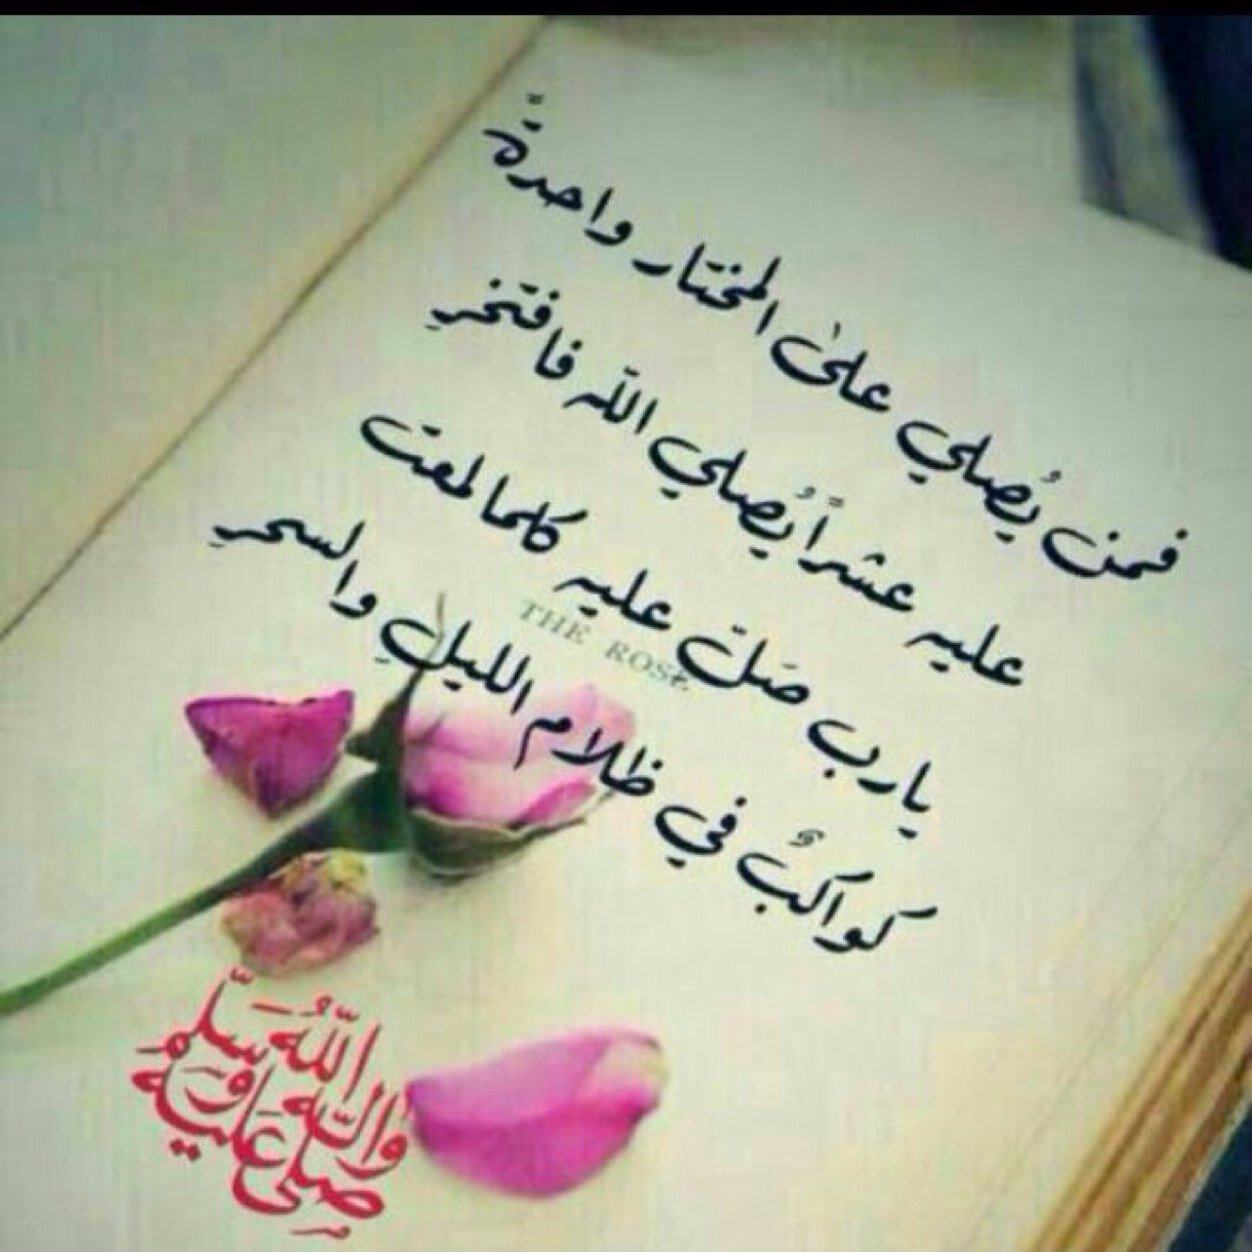 فمن يُصلي علىٰ المختار واحدةً
عليه عشراً يُصلي اللّه فافتخرِ
يارب صَلّ عليه كلما لمعت
كواكبٌ في ظلام الليلِ والسحرِ
THE ROSE
صلى الله عليه وآله وسلم